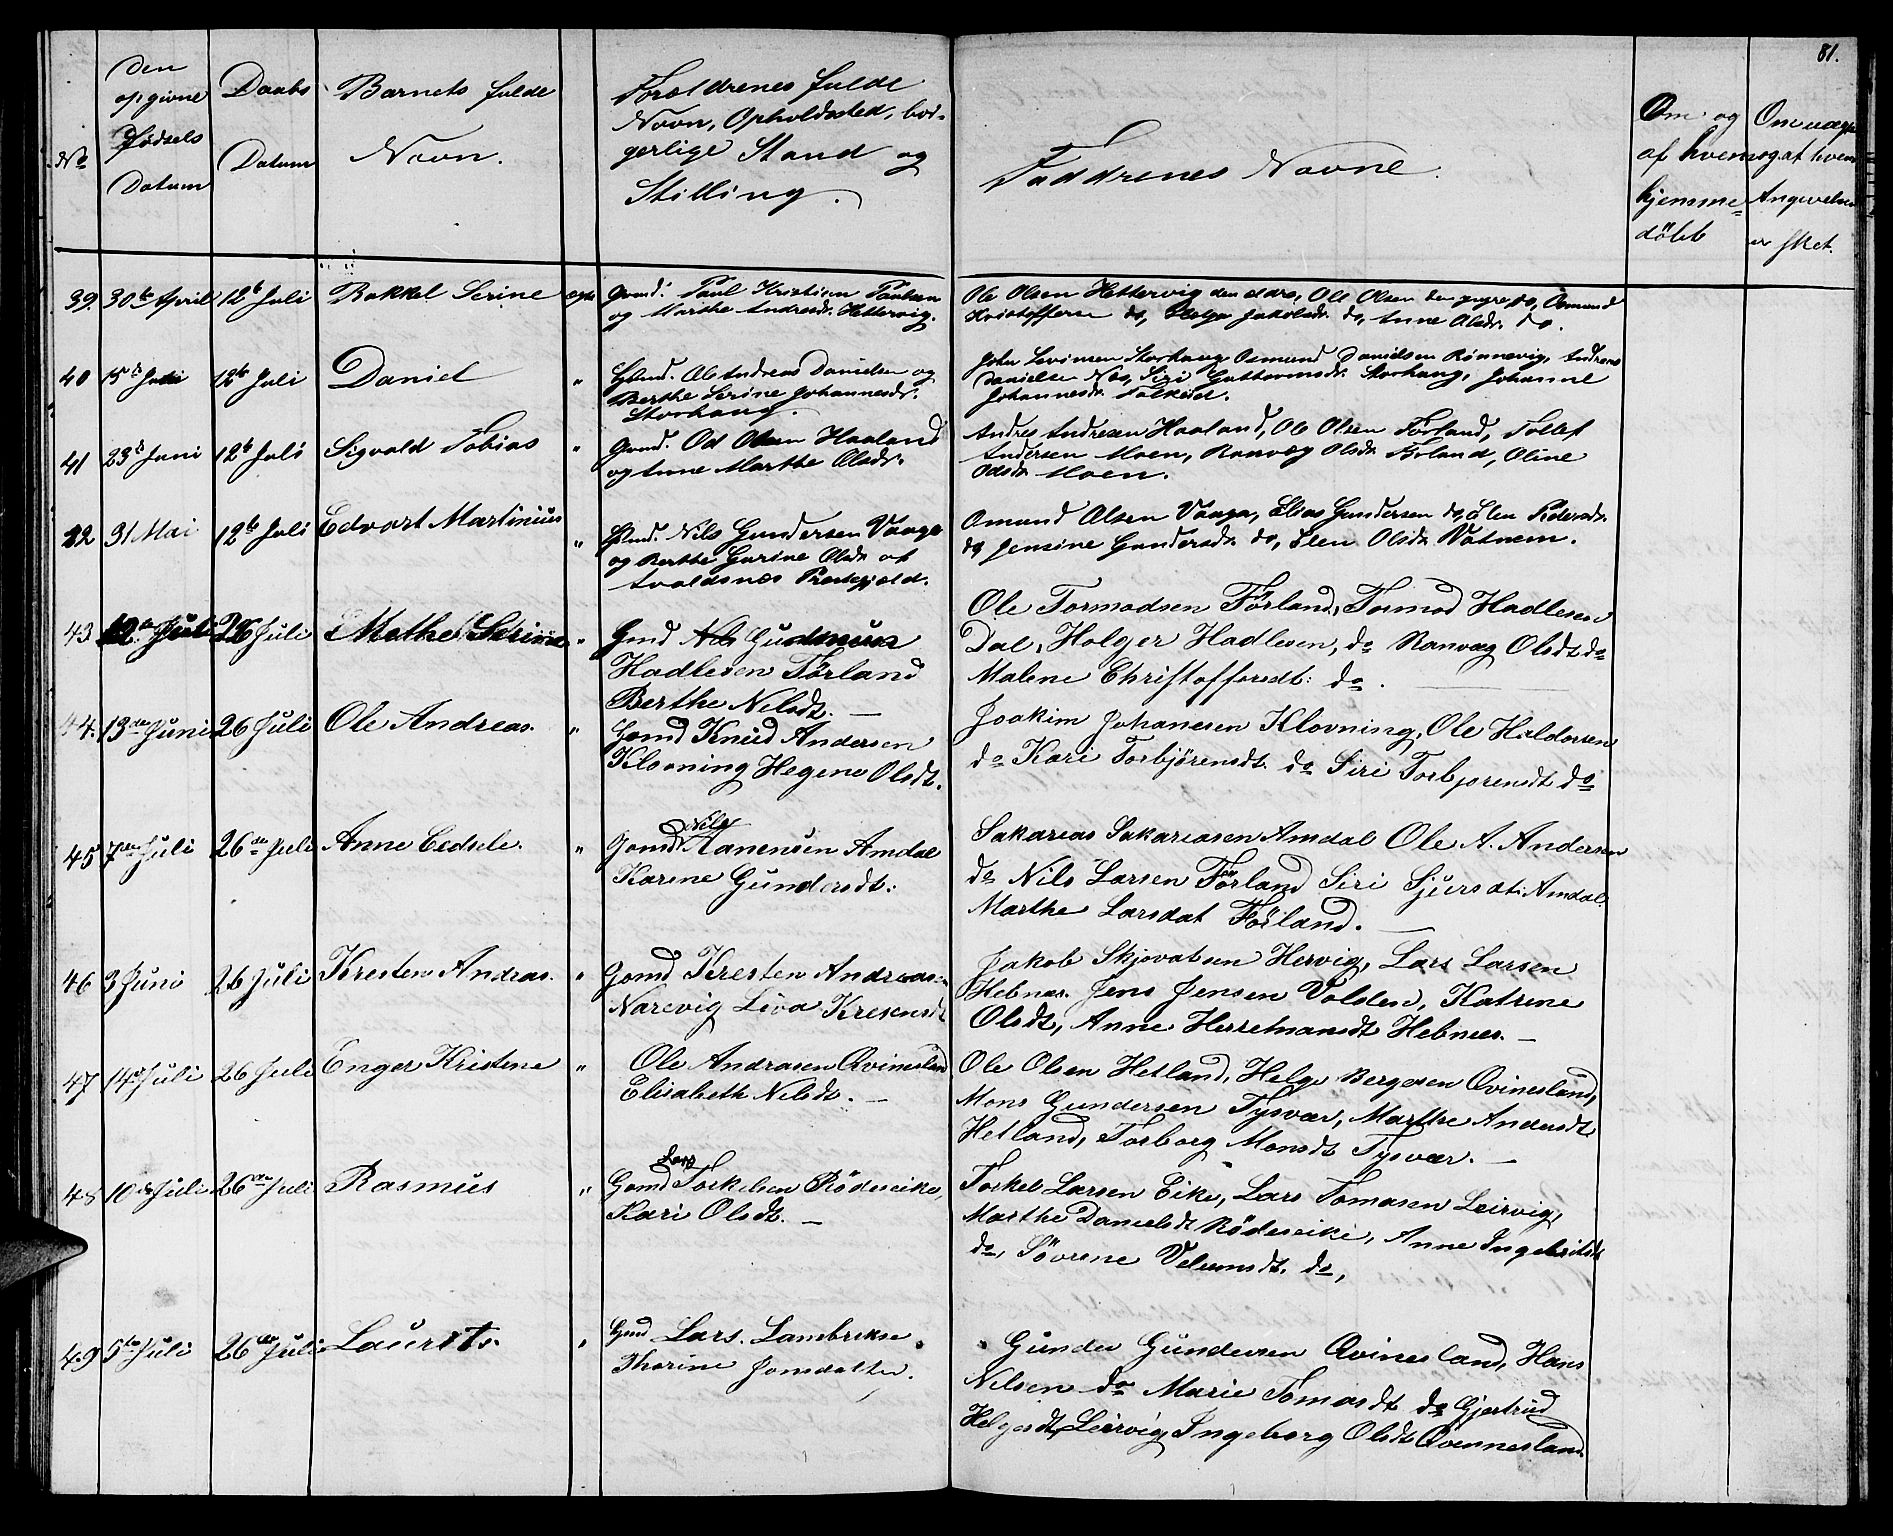 81.
No
Den opgivne Fødsels Datum
Daabs Datum
Barnets fulde Navn.
Forældrenes fulde
Navn, Opholdssted, bor-
gerlige Stand og
Stilling.
Faddrenes Navne.
Om og af hvem hjemme= döbt
Om og at hvem Angivelsen er sket.
39. 30te April 12te Juli Rakkel Serine egte Gmd. Paul Kristian Paulsen
og Marthe Andresdr. Hettervig.
Ole Olsen Hettervig den eldre, Ole Olsen den yngre do, Osmund
Kristoffersen do, Helga Jakobsdr. do, Anne Olsdr. do.
40 15de 12te Juli Daniel " Ole Andreas Danielsen og
Berthe Serine Johannesdr.
Storhaug.
John Sevinsen Storhaug Osmund Danielsen Rønnevig, Andreas
Danielsen Næs, Siri Guttormsdr. Storhaug, Johanne
Johannesdr. Falkeid.
41 23de Juni 12te Juli Sigvald Tobias " Gmd. Od Olsen Haaland
og Anne Marthe Olsdr.
Andres Andresen Haaland, Ole Olsen Førland, Tollef
Andersen Moen, Ranvæg Olsdr. Førland, Oline
Odsdr. Moen.
22 31 Mai 12te Juli Edvart Martinius " Nils Gundersen Vaage
og Berthe Gurine Olsdr. af
Avaldsnæs Prestegjeld.
Osmund Olsen Vaage, Elias Gundersen do, Elen Pedersdr.
do Jensine Gundersdr. do, Elen Olsdr. Vatnem.
43 12te Juli 26 Juli Mathe Serine " Gmd Nils Gudmun
Hadlesen Førland
Berthe Nilsdt. —
Ole Tormodsen Førland, Tormod Hadlesen
Dal, Holger Hadlesen, do Ranvæg Olsdt do
Malene Christoffersdt: do.
44. 13de Juni 26 Juli Ole Andreas. " Gmd Knud Andersen
Klovning Hegene Olsdt.
Joakim Johanesen Klovning, Ole Haldorsen
do Kari Torbjørensdt. do Siri Torbjorensdt do
45 7de Juli 26de Juli Anne Cedsele. " Gmd Nils Hanensen Amdal
Karine Gundersdt:
Sakarias Sakariasen Amdal Ole A. Andersen
do Nils Larsen Førland Siri Sjursdt: Amdal.
Marthe Larsdat Førland. —
46 3 Juni 26 Juli Kresten Andreas. " Gmd Kresten Andreas
Narevig Liva Kresensdt
Jakob Skjovatsen Hervig, Lars Larsen
Hebnæs. Jens Jensen Valsten, Katrine
Olsdt, Anne Herremansdt Hebnæs. —
47 14de Juli 26 Juli Enger Kristine " Ole Andrasen Qvinesland
Elisabeth Nilsdt. —
Ole Olsen Hetland, Helge Bergesen Qvinesland,
Mons Gundersen Tysvær, Marthe Andersdt
Hetland, Torborg Monsdt Tysvær. —
48 10de Juli 26de Juli Rasmus " Gmd Lars Torkelsen Rödeseike,
Kari Olsdt. —
Torkel Larsen Eike, Lars Tomasen Leirvig,
Marthe Danielsdt Rödeseike, Anne Ingebritsdt
do, Sövrene Velumsdt. do,
49 5te Juli 26de Juli Laurits. " Gmd Lars. Lambrekse
Thorine Jonsdatter.
Gunder Gundersen Qvinesland, Hans
Nelsen do Marie Tomasdt do Gjertrud
Helgesdt, Leirvig Ingeborg Olsdt Qvennesland.